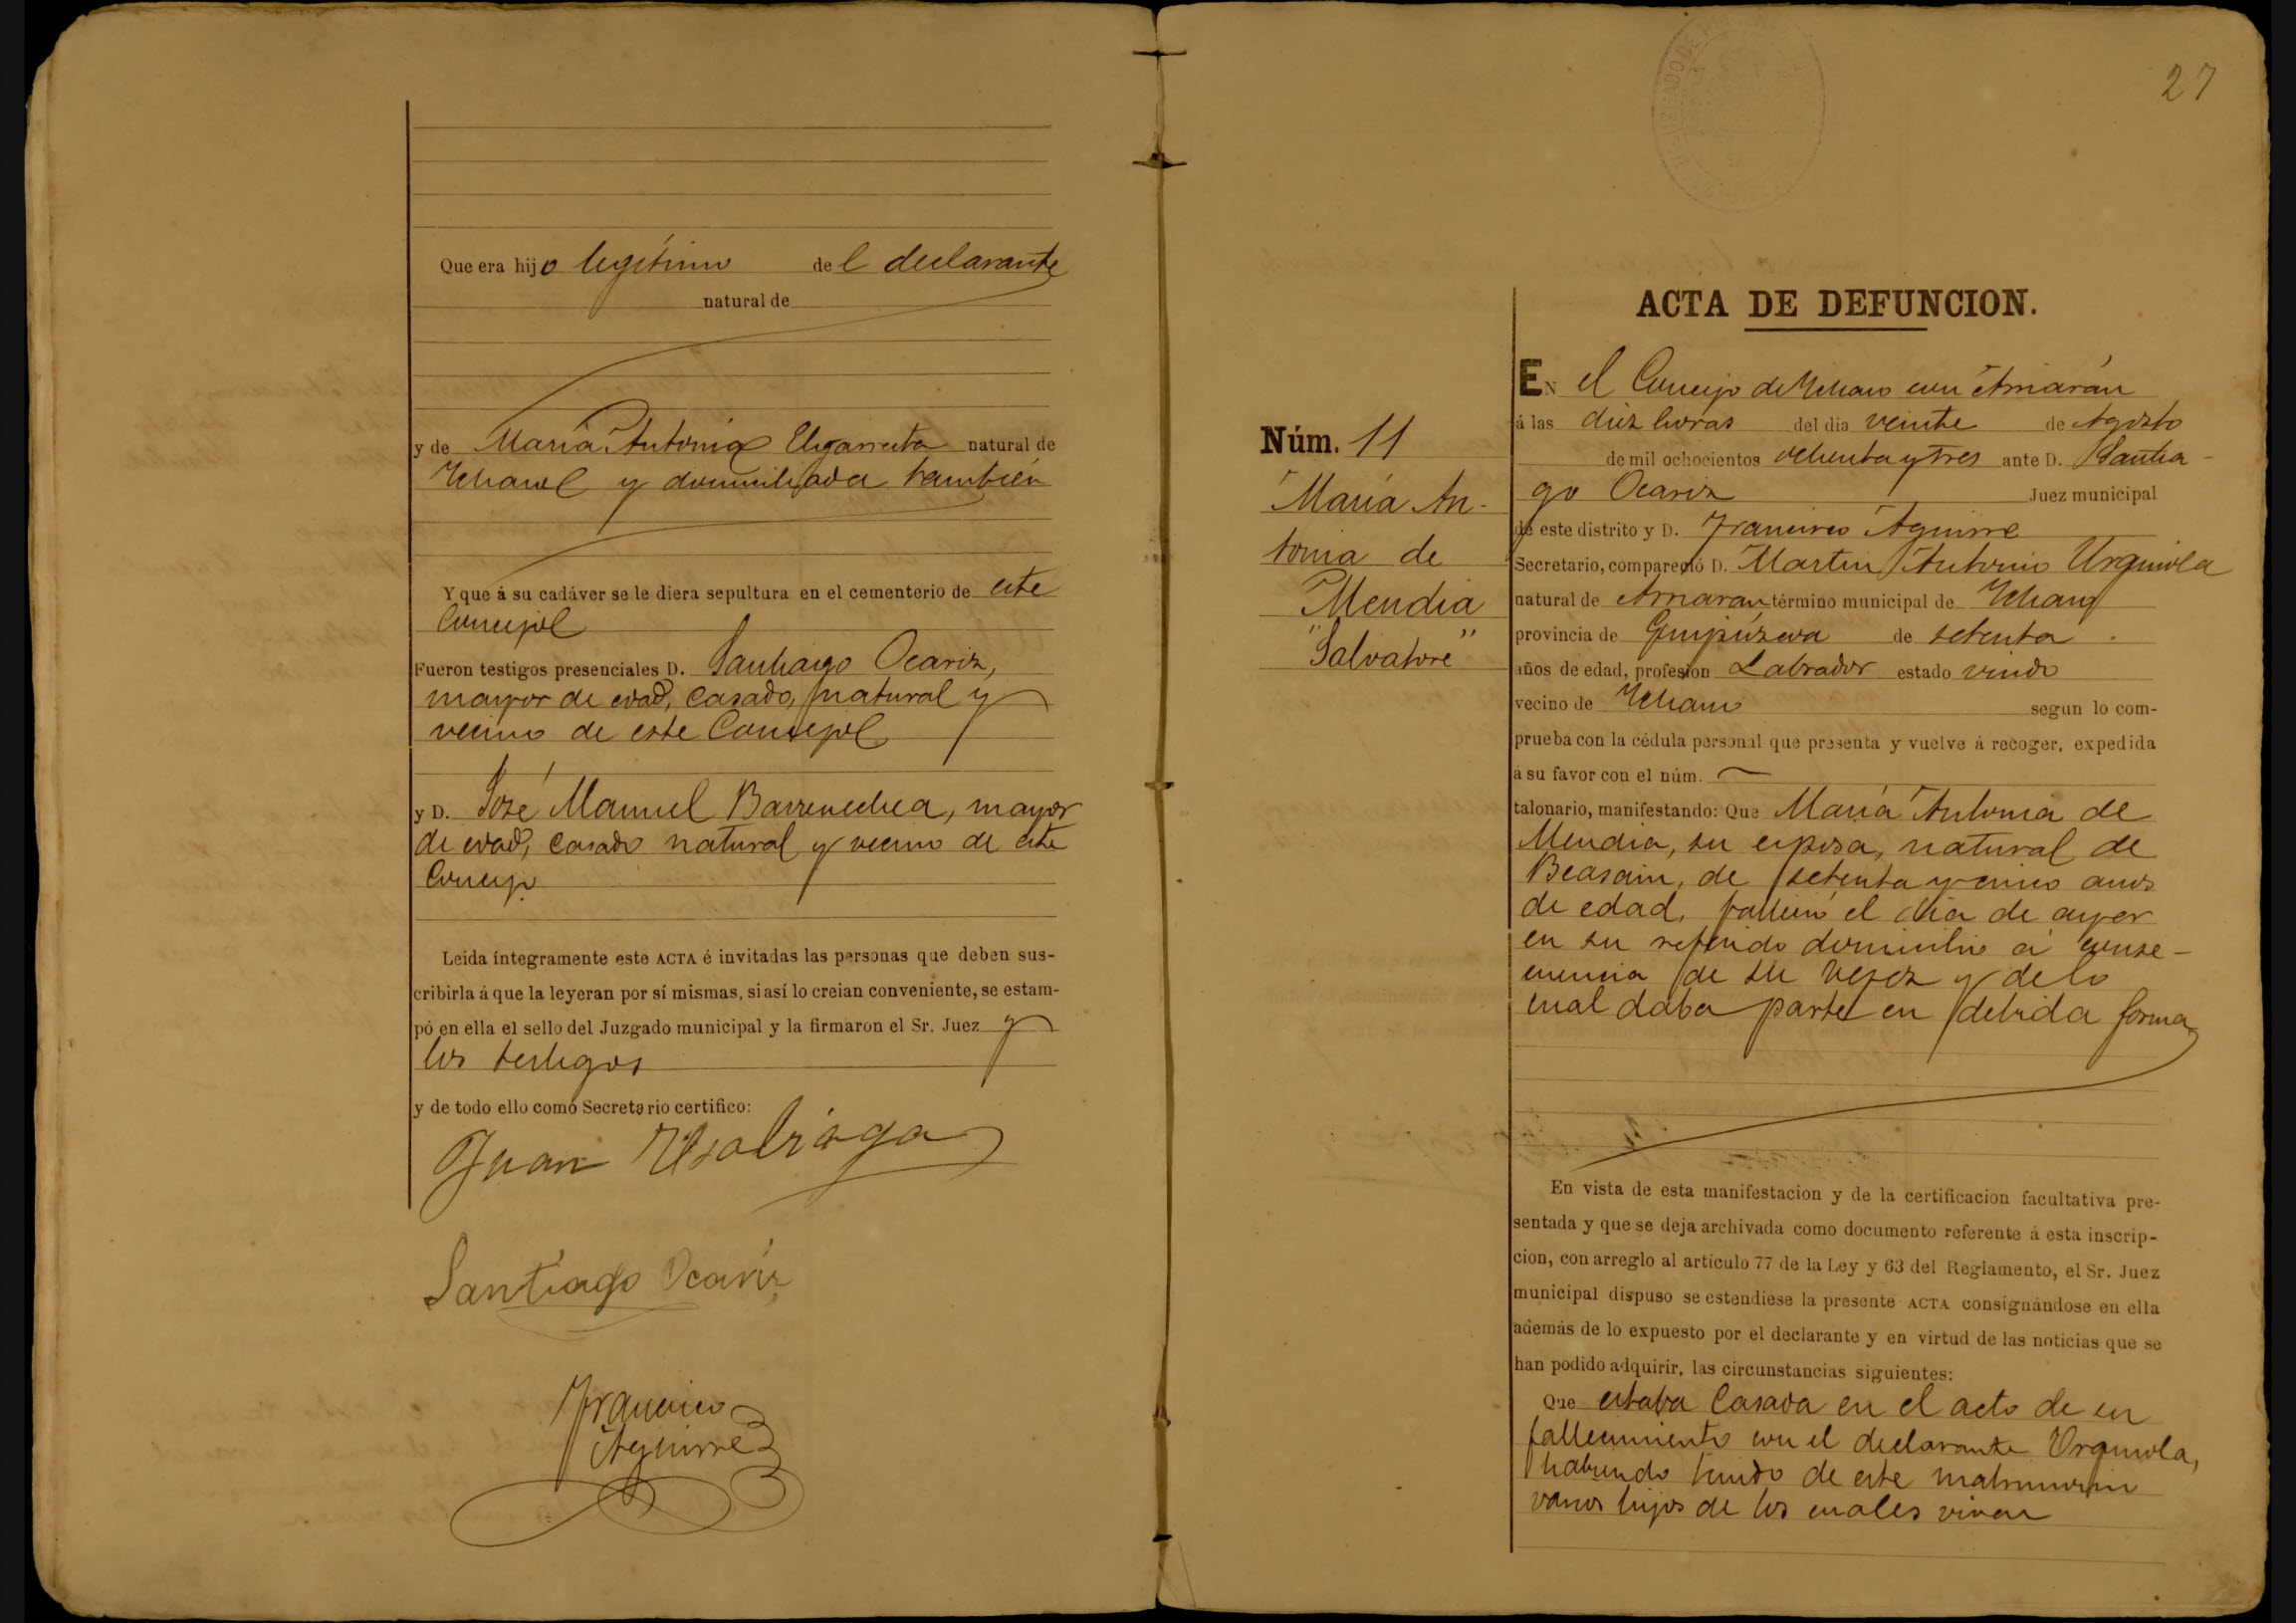 Que era hijo legítimo del declarante
natural de
y de María Antonia natural de
Ichaso y domiciliada también
Y que á su cadáver se le diera sepultura en el cementerio de este
Concejo
Fueron testigos presenciales D. Santiago Ocariz,
mayor de edad, casado, natural y
vecino de este Concejo
y D. José Manuel Barrenechea, mayor
de edad, casado natural y vecino de este
Concejo
Leida íntegramente este ACTA é invitadas las personas que deben sus-
cribirla á que la leyeran por sí mismas, si así lo creian conveniente, se estam-
pó en ella el sello del Juzgado municipal y la firmaron el Sr. Juez y
los testigos
y de todo ello como Secretario certifico:
Juan
Santiago Ocariz
Francisco
Aguirre
27
ACTA DE DEFUNCION.
Núm. 11
María An-
tonia de
Mendia
"Salvatore"
EN el Concejo de Ichaso con Arriarán
á las diez horas del dia veinte de Agosto
de mil ochocientos ochenta y tres ante D. Santia-
go Ocariz Juez municipal
de este distrito y D. Francisco Aguirre
Secretario, compareció D. Martin Antonio Urquiola
natural de Arriaran término municipal de Ichaso
provincia de Guipúzcoa de setenta
años de edad, profesion Labrador estado viudo
vecino de Ichaso segun lo com-
prueba con la cédula personal que presenta y vuelve á recoger, expedida
á su favor con el núm.
talonario, manifestando: Que María Antonia de
Mendia, su esposa, natural de
Beasain, de setenta y cinco anos
de edad, falleció el dia de ayer
en su referido domicilio á conse-
cuencia de su vejez y de lo
cual daba parte en debida forma
En vista de esta manifestacion y de la certificacion facultativa pre-
sentada y que se deja archivada como documento referente á esta inscrip-
cion, con arreglo al artículo 77 de la Ley y 63 del Reglamento, el Sr. Juez
municipal dispuso se estendiese la presente ACTA consignándose en ella
además de lo expuesto por el declarante y en virtud de las noticias que se
han podido adquirir, las circunstancias siguientes:
Que estaba Casada en el acto de su
fallecimiento con el declarante Urquiola,
habiendo tenido de este matrimonio
varios hijos de los cuales viven